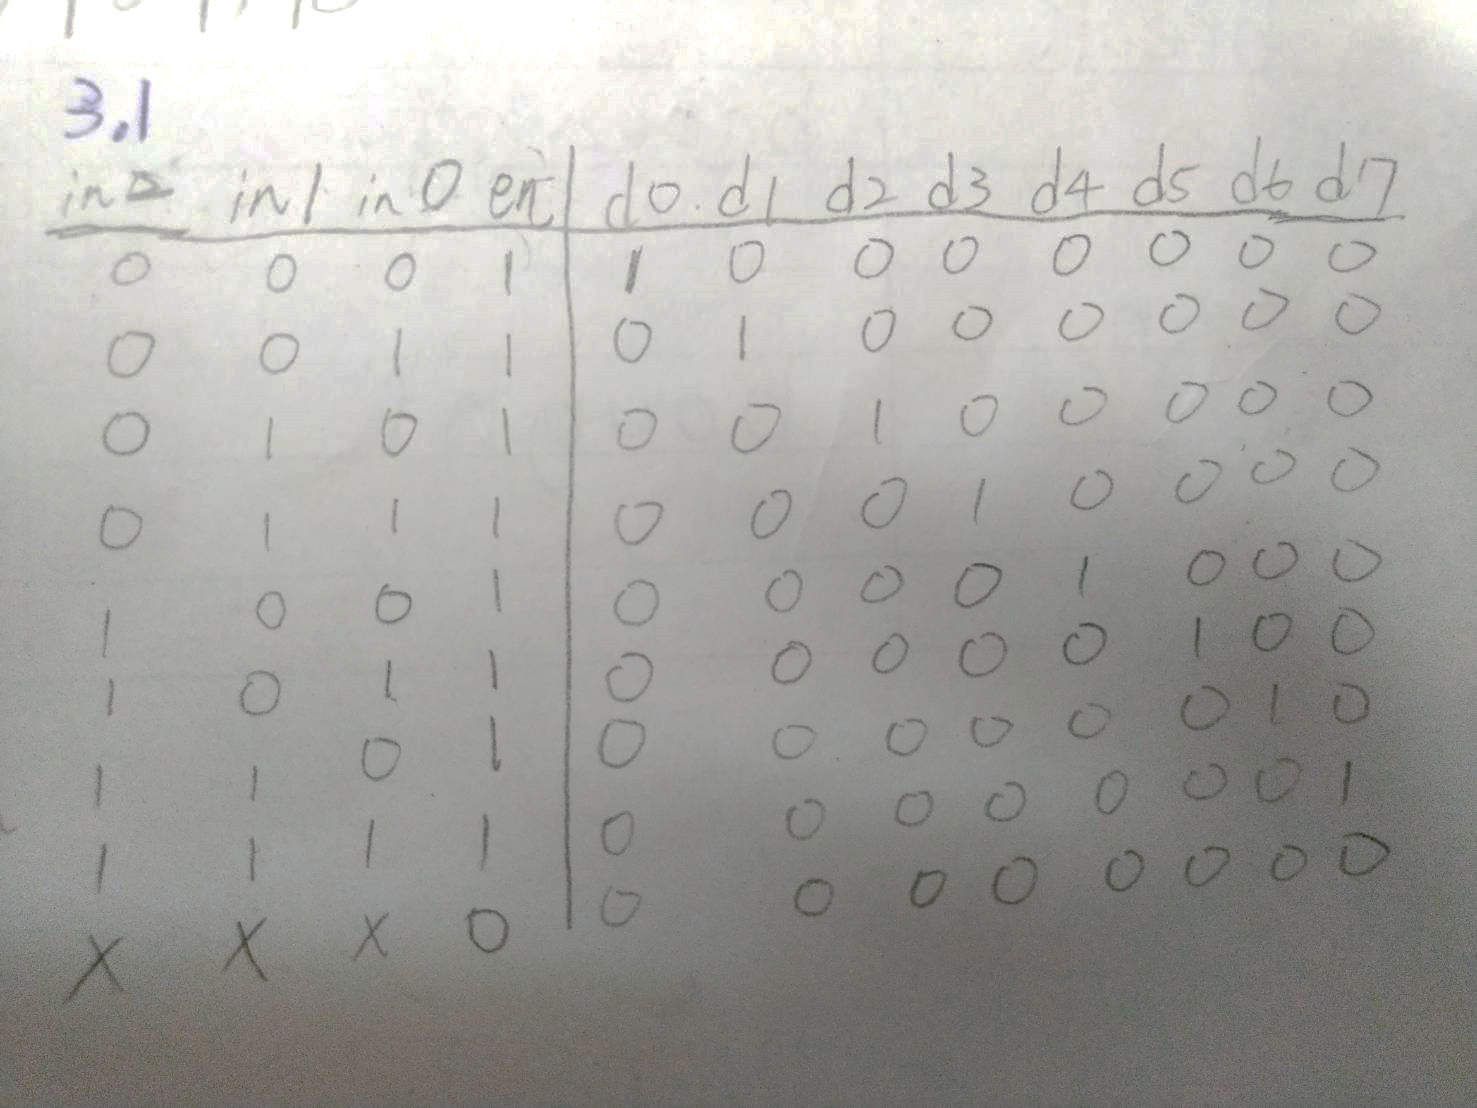 3.1
in2 in1 in0 en d0 d1 d2 d3 d4 d5 d6 d7
0 0 0 1 1 0 0 0 0 0 0 0
0 0 1 1 0 1 0 0 0 0 0 0
0 1 0 1 0 0 1 0 0 0 0 0
0 1 1 1 0 0 0 1 0 0 0 0
1 0 0 1 0 0 0 0 1 0 0 0
1 0 1 1 0 0 0 0 0 1 0 0
1 1 0 1 0 0 0 0 0 0 1 0
1 1 1 1 0 0 0 0 0 0 0 1
X X X 0 0 0 0 0 0 0 0 0